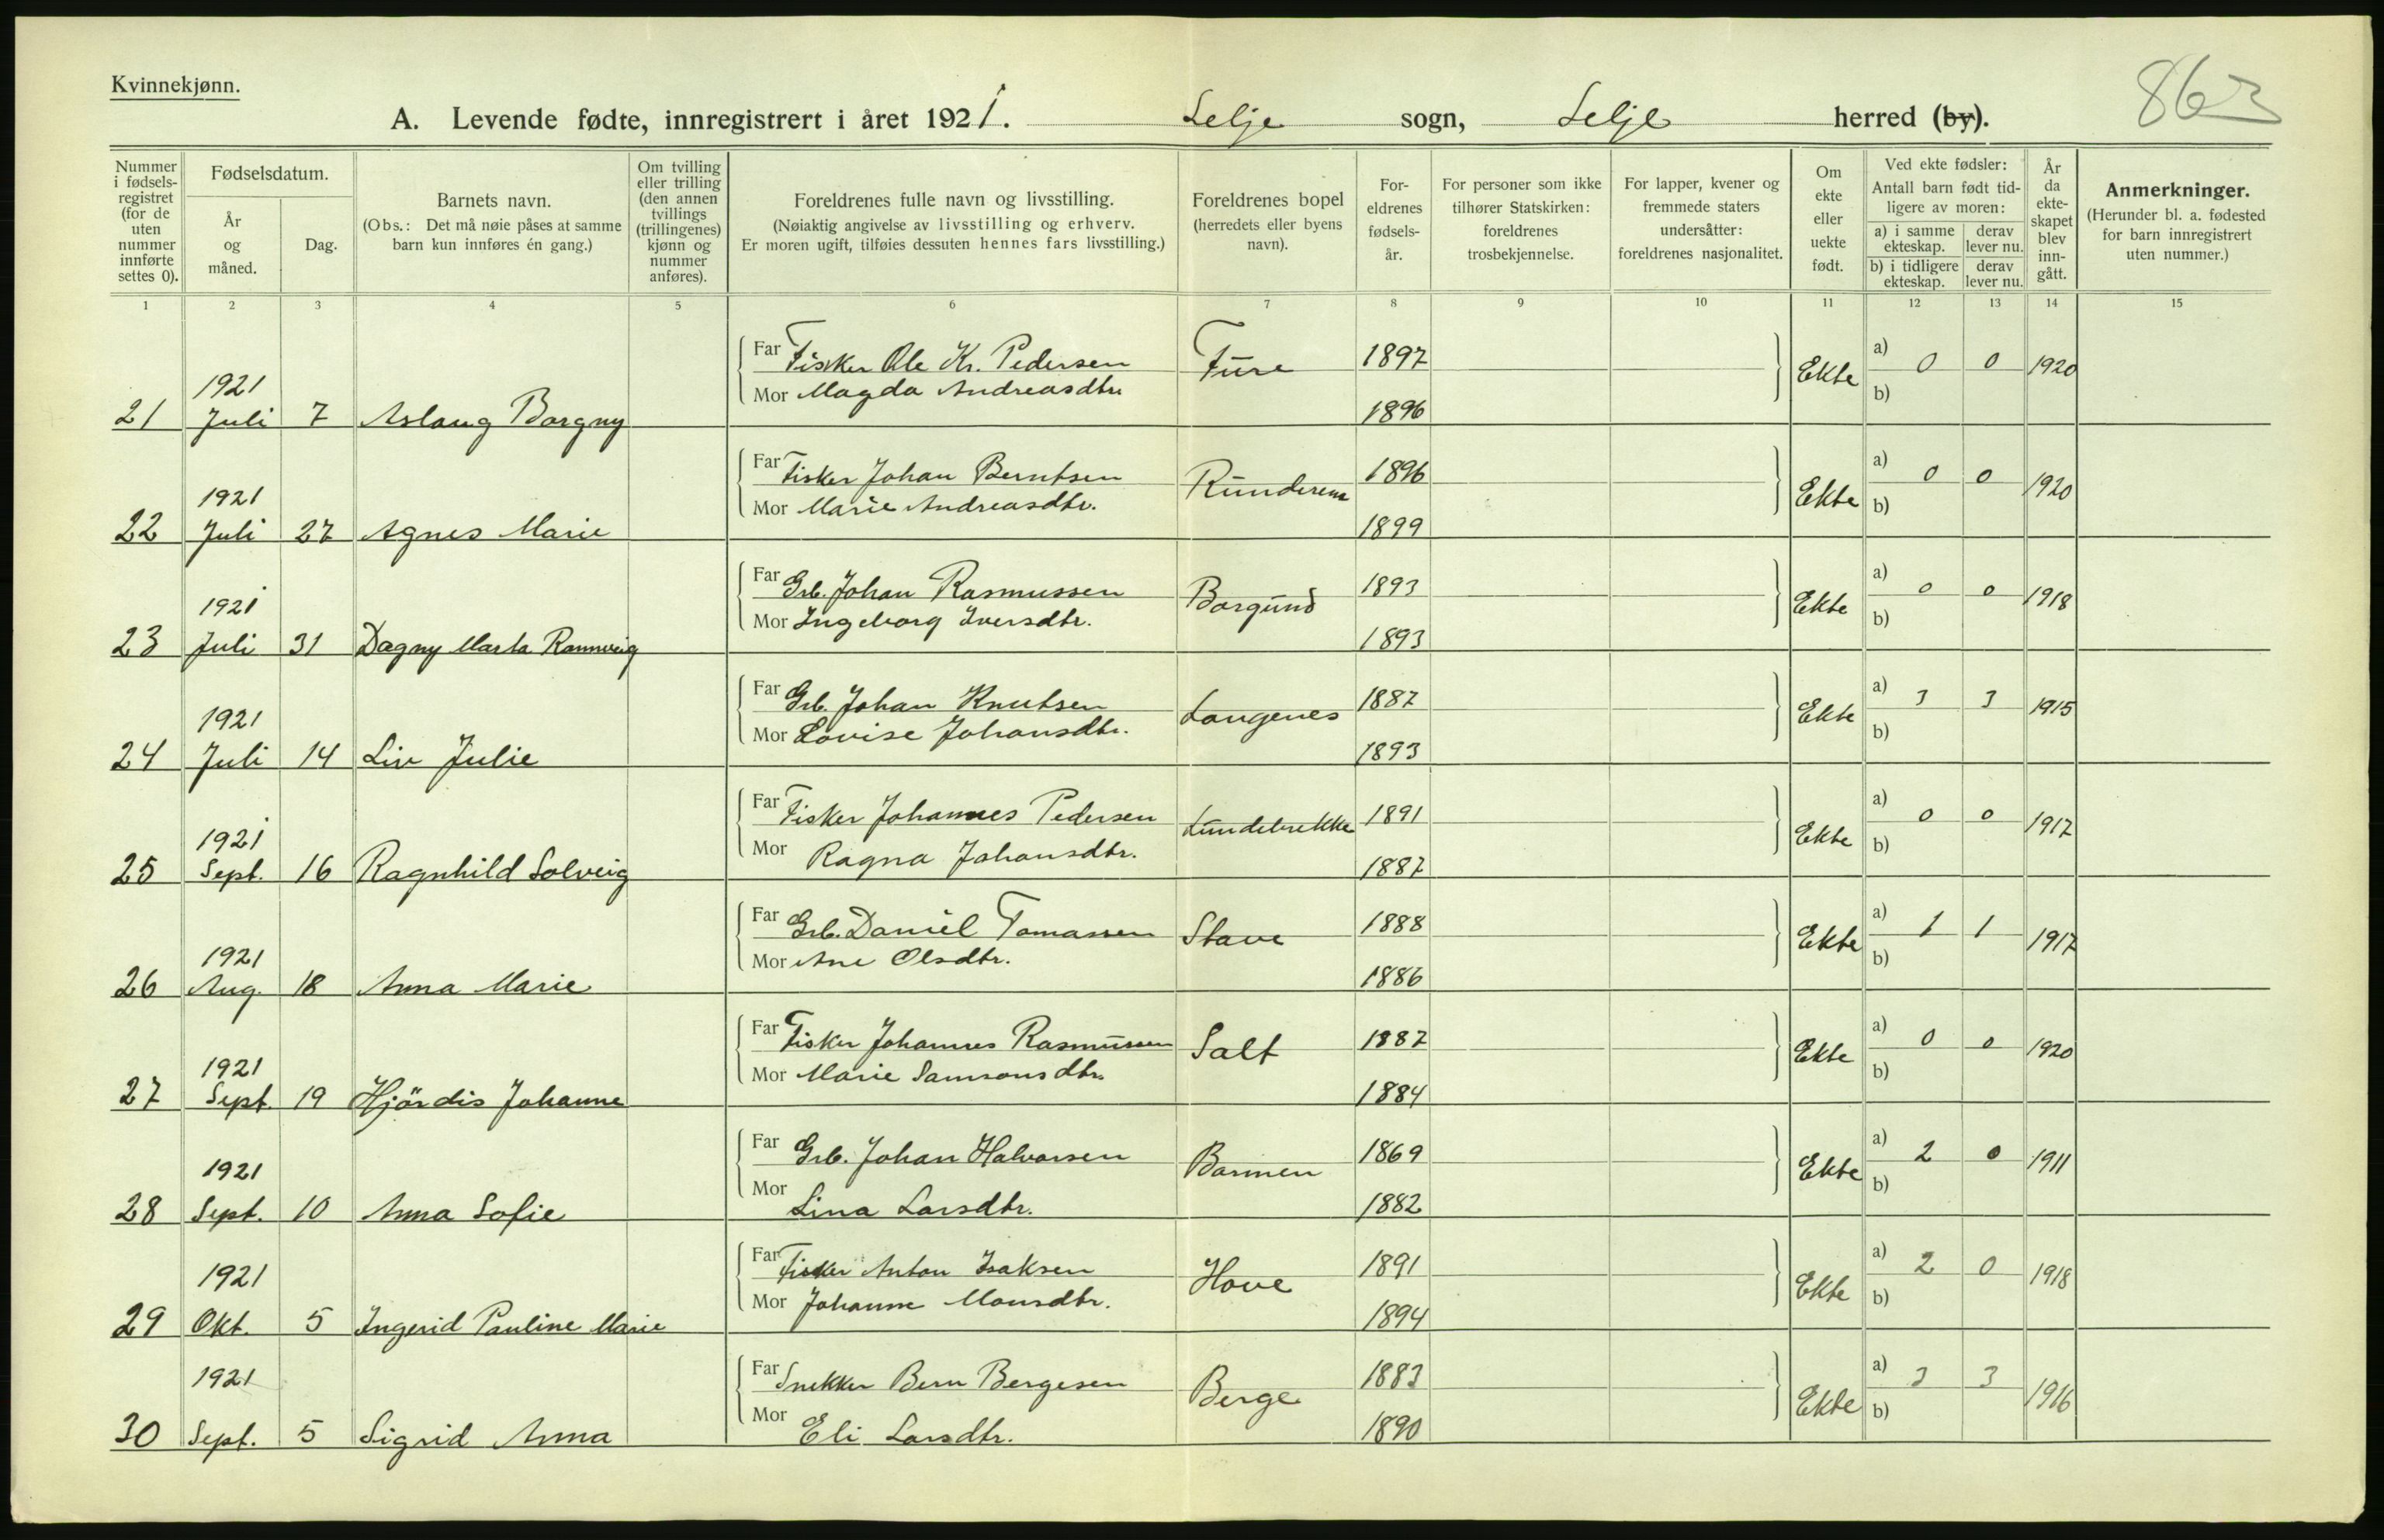 Kvinnekjønn.
863
A. Levende fødte, innregistrert i året 1921. Selje sogn, Selje herred (by).
Nummer i fødsels-registret (for de uten nummer innførte settes 0).
Fødselsdatum.
År og måned.
Dag.
Barnets navn.
(Obs.: Det må nøie påses at samme barn kun innføres én gang.)
Om tvilling eller trilling (den annen tvillings (trillingenes) kjønn og nummer anføres).
Foreldrenes fulle navn og livsstilling.
(Nøiaktig angivelse av livsstilling og erhverv.
Er moren ugift, tilføies dessuten hennes fars livsstilling.)
Foreldrenes bopel
(herredets eller byens navn).
For-eldrenes fødsels-år.
For personer som ikke tilhører Statskirken: foreldrenes trosbekjennelse.
For lapper, kvener og fremmede staters undersåtter: foreldrenes nasjonalitet.
Om ekte eller uekte født.
Ved ekte fødsler:
Antall barn født tid-ligere av moren:
a) i samme ekteskap.
derav lever nu.
b) i tidligere ekteskap.
derav lever nu.
År da ekte-skapet blev inn-gått.
Anmerkninger.
(Herunder bl. a. fødested for barn innregistrert uten nummer.)
1 2 3 4 5 6 7 8 9 10 11 12 13 14 15
Far Fisker Ole Kr. Pedersen Füre 1897 Ekte a) 0 0 1920
Mor Magda Andreasdtr 1896 b)
21 1921 Juli 7 Aslaug Borgny
Far Fisker Johan Berntsen 1896 Ekte a) 0 0 1920
Mor Marie Andreasdtr. 1899 b)
22 1921 Juli 27 Agnes Marie
Far Grb. Johan Rasmussen Borgünd 1893 Ekte a) 0 0 1918
Mor Ingeborg Iversdtr. 1893 b)
23 1921 Juli 31 Dagny Marta Rannveig
Far Grb. Johan Knutsen Langenes 1887 Ekte a) 3 3 1915
Mor Lovise Johansdtr. 1893 b)
24 1921 Juli 14 Liv Julie
Far Fisker Johannes Pedersen Lündebrekke 1891 Ekte a) 0 0 1917
Mor Ragna Johansdtr. 1887 b)
25 1921 Sept. 16 Ragnhild Solveig
Far Grb. Daniel Tomassen Stave 1888 Ekte a) 1 1 1917
Mor Ane Olsdtr. 1886 b)
26 1921 Aug. 18 Anna Marie
Far Fisker Johannes Rasmüssen Salt 1887 Ekte a) 0 0 1920
Mor Marie Samsonsdtr. 1884 b)
27 1921 Sept. 19 Hjördis Johanne
Far Grb. Johan Halvorsen Barmen 1869 Ekte a) 2 0 1911
Mor Lina Larsdtr. 1882 b)
28 1921 Sept. 10 Anna Sofie
Far Fisker Anton Isaksen Hove 1891 Ekte a) 2 0 1918
Mor Johanne Monsdtr. 1894 b)
29 1921 Okt. 5 Ingerid Pauline Marie
Far Snekker Bern Bergesen Berge 1883 Ekte a) 3 3 1916
Mor Eli Larsdtr. 1890 b)
30 1921 Sept. 5 Sigrid Anna